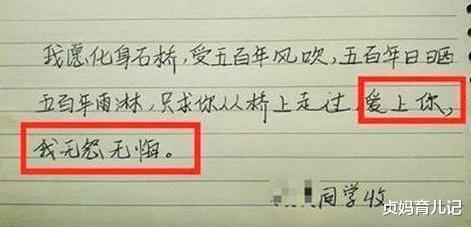 我愿化身石桥，受五百年风吹，五百年日晒
五百年雨淋，只求你从桥上走过，爱上你，
我无怨无悔。
同学收
贞妈育儿记